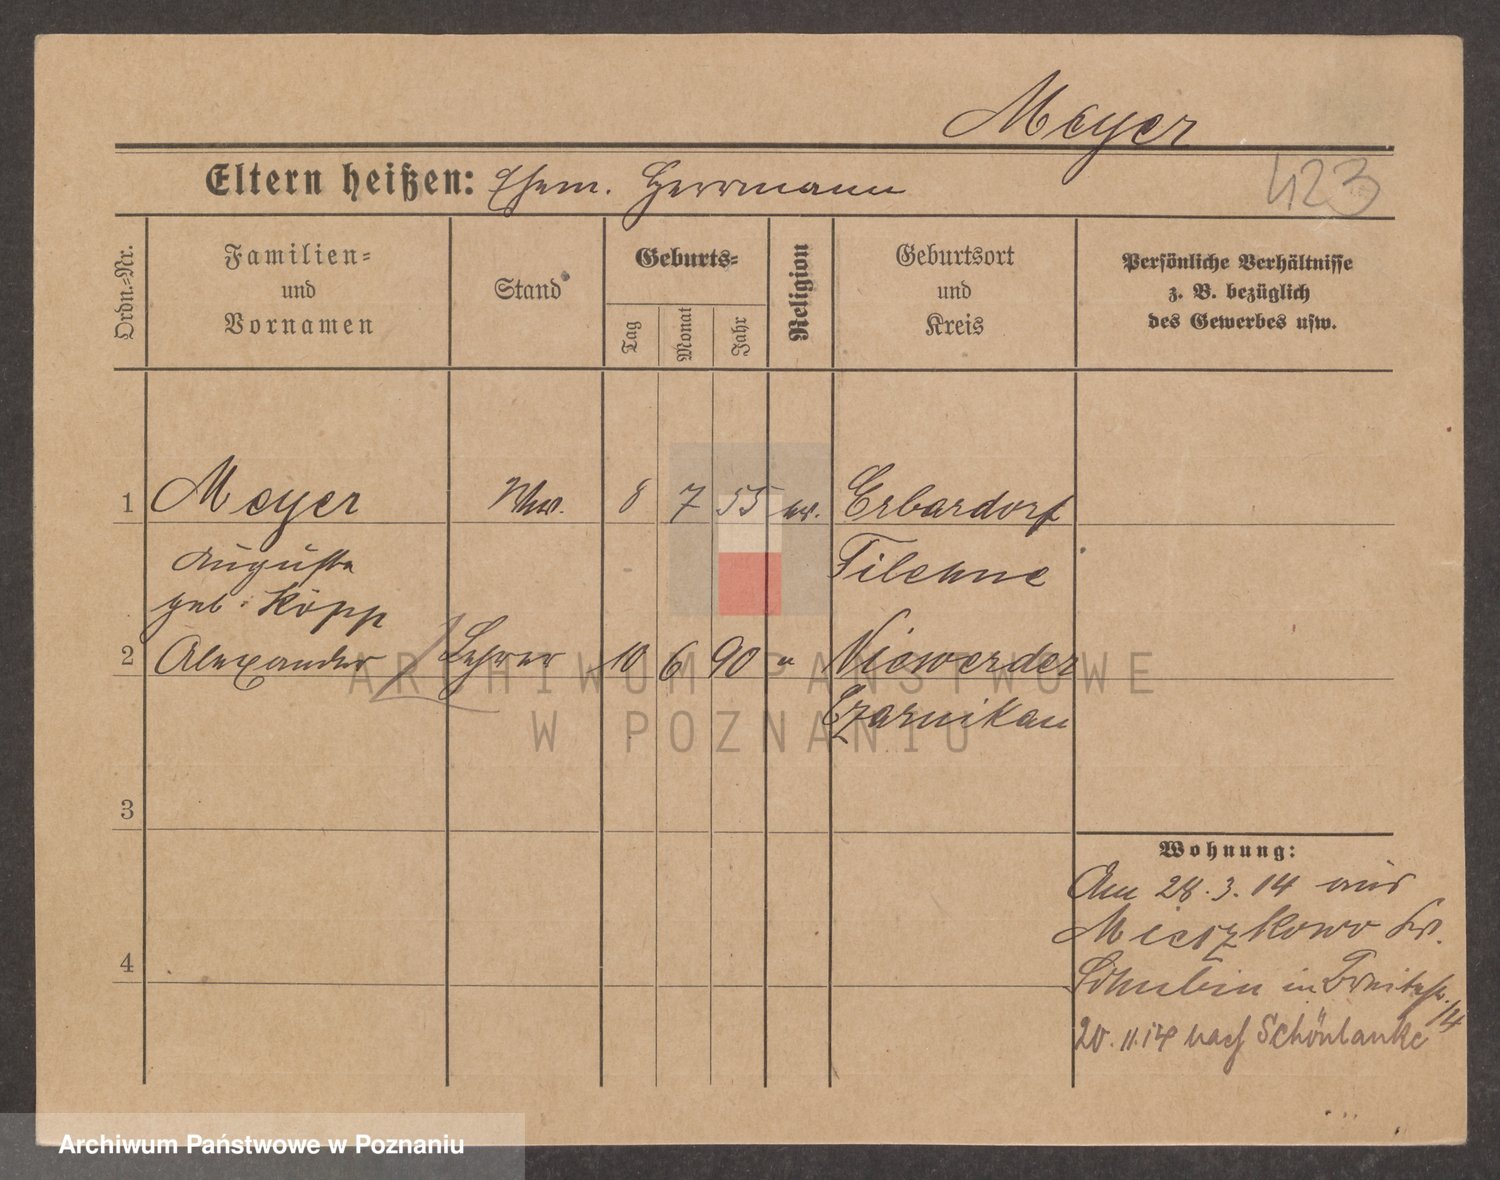 Meyer
Eltern heißen: Ehem. Herrmann
423
Ordn.=Nr.
Familien=
und
Vornamen
Stand
Geburts=
Tag
Monat
Jahr
Religion
Geburtsort
und
Kreis
Persönliche Verhältnisse
z. B. bezüglich
des Gewerbes usw.
1 Meyer Ww. 8 7 55 ev. Erbardorf
Auguste Filehne
geb. Köpp
2 Alexander Lehrer 10 6 90 " Niewerder
Czarnikau
3
4
Wohnung:
Am 28.3.14 aus
Mieczkowo Kr.
Schubin in
14
20.11.14 nach Schönlanke
ARCHIWUM PAŃSTWOWE
W POZNANIU
Archiwum Państwowe w Poznaniu